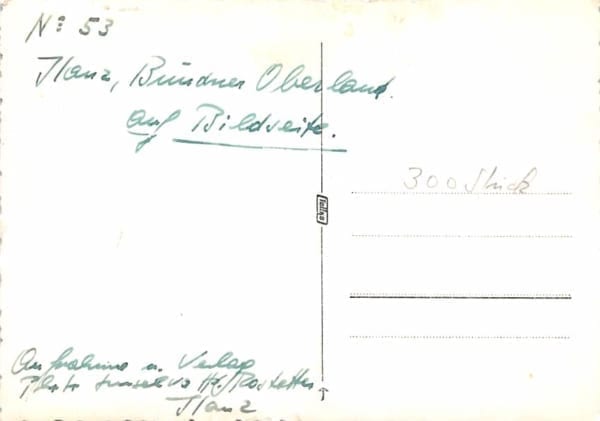 N: 53
Ilanz, Bündner Oberland.
auf Bildseite.
300 Stück
Aufnahme u. Verlag
Photo
Ilanz